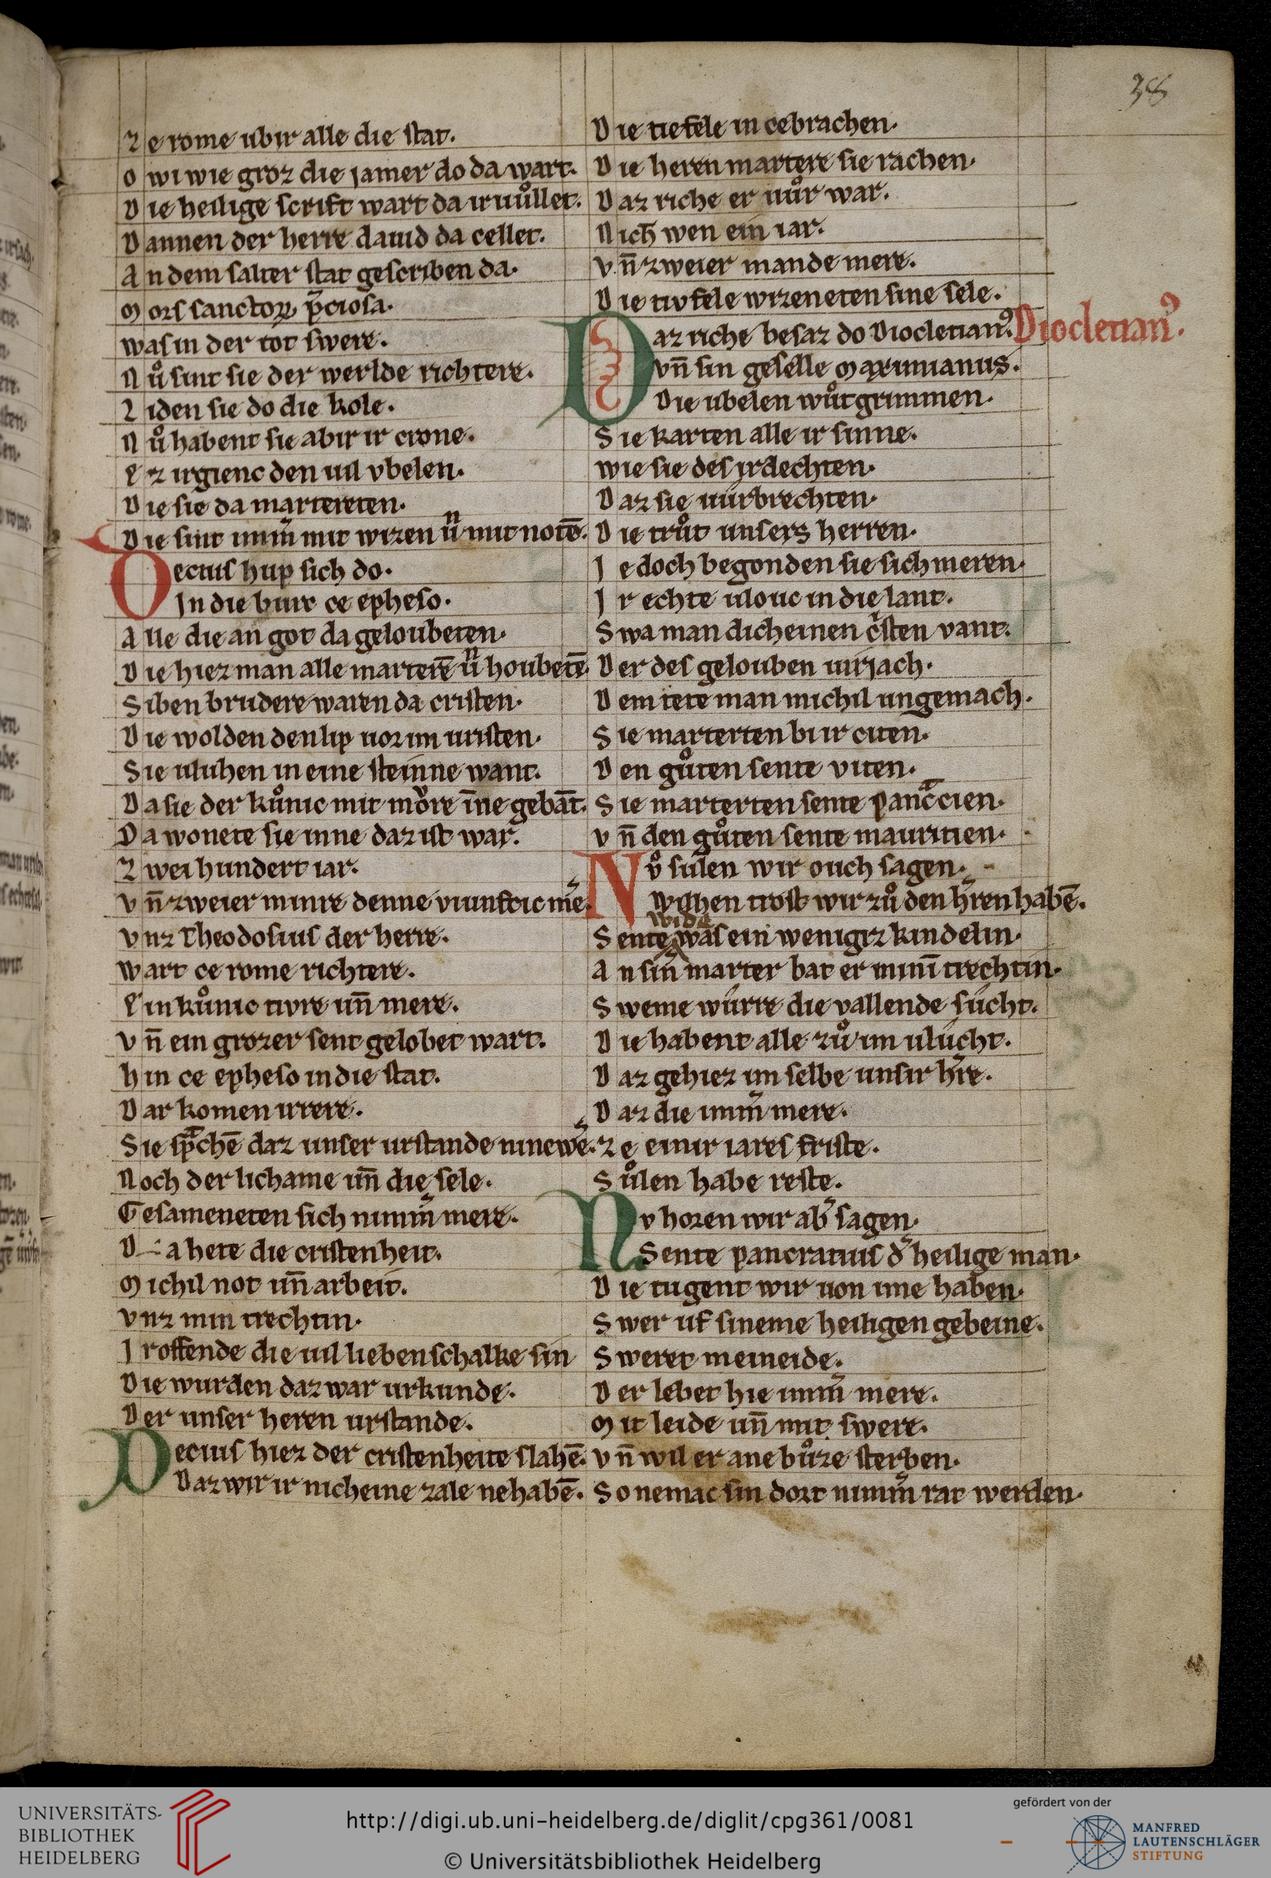 38
Ze rome ubir alle die stat.
O wi wie groz die jamer do da wart.
Die heilige scrift wart da iruuͦllet.
Dannen der herre dauid da cellet.
An dem salter stat gescriben da.
Mors sanctoꝝ p̄ciosa.
was in der tot swere.
Nuͦ sint sie der werlde richtere.
Liden sie do die kole.
Nuͦ habent sie abir ir crone.
Ez irgienc den uil vbelen.
Die sie da martereten.
Die sint im̄m̄ mit wizen un̄ mit notē.
Decius hup sich do.
In die burc ce epheso.
Alle die an got da geloubeten.
Die hiez man alle marterē un̄ houbetē
Siben brudere waren da cristen.
Die wolden den lip uor im uristen.
Sie uluhen in eine steinne want.
Da sie der kuͦnic mit moͮre īne gebāt.
Da wonete sie inne daz ist war.
Zwei hundert iar.
vn̄ zweier minre denne viunfcic me͛.
vnz Theodosius der herre.
wart ce rome richtere.
Ein kuͦnic tivre un̄ mere.
vn̄ ein grozer sent gelobet wart.
hin ce epheso in die stat.
Dar komen irrere.
Sie spͣchē daz unser urstande ninewe͛.
Noch der lichame un̄ die sele.
Gesameneten sich nim̄m͛ mere.
Da hete die cristenheit.
Michil not un̄ arbeit.
vnz min trechtin.
Iroffende die uil lieben schalke sin
Die wurden daz war urkunde.
Der unser heren urstande.
Decius hiez der cristenheite slahē.
Daz wir ir nicheine zale ne habē.
Die tiefele in cebrachen.
Die heren martere sie rachen.
Daz riche er uuͦr war.
Nich̄ wen ein iar.
vn̄ zweier mande mere.
Die tivfele wizeneten sine sele.
Daz riche besaz do Dioclecianꝰ. Dioclecianꝰ.
vn̄ sin geselle Maximianus.
Die ubelen wuͦtgrimmen.
Sie karten alle ir sinne.
wie sie des irdechten.
Daz sie uúrbrechten.
Die truͦt unsers herren.
Jedoch begonden sie sich meren.
Ir echte ulouc in die lant.
Swa man dicheinen c͛sten vant.
Der des gelouben uirjach.
Dem tete man michil ungemach.
Sie marterten bi ir citen.
Den guͦten sente viten.
Sie marterten sente pancͣcien.
vn̄ den guͦten sente mauricien.
Nvͦ sulen wir ouch sagen.
Wilhen trost wir zuͦ den h͛ren habē.
Sente wide was ein wenigez kindelin.
An sin͛ marter bat er minī trechtin.
Sweme wúrre die vallende súcht.
Die habent alle zuͦ im ulúcht.
Daz gehiez im selbe unsir h͛re.
Daz die im̄m͛ mere.
Ze einir iares friste.
Suͦlen habe reste.
Nv horen wir ab͛ sagen.
Sente pancratius d͛ heilige man.
Die tugent wir uon ime haben.
Swer uf sineme heiligen gebeine.
Sweret meineide.
Der lebet hie im̄m͛ mere.
Mit leide un̄ mit swere.
vn̄ wil er ane buͦze sterben.
So nemac sin dort nim̄m͛ rat werden.
UNIVERSITÄTS-
BIBLIOTHEK
HEIDELBERG
http://digi.ub.uni-heidelberg.de/diglit/cpg361/0081
© Universitätsbibliothek Heidelberg
gefördert von der
MANFRED
LAUTENSCHLÄGER
STIFTUNG